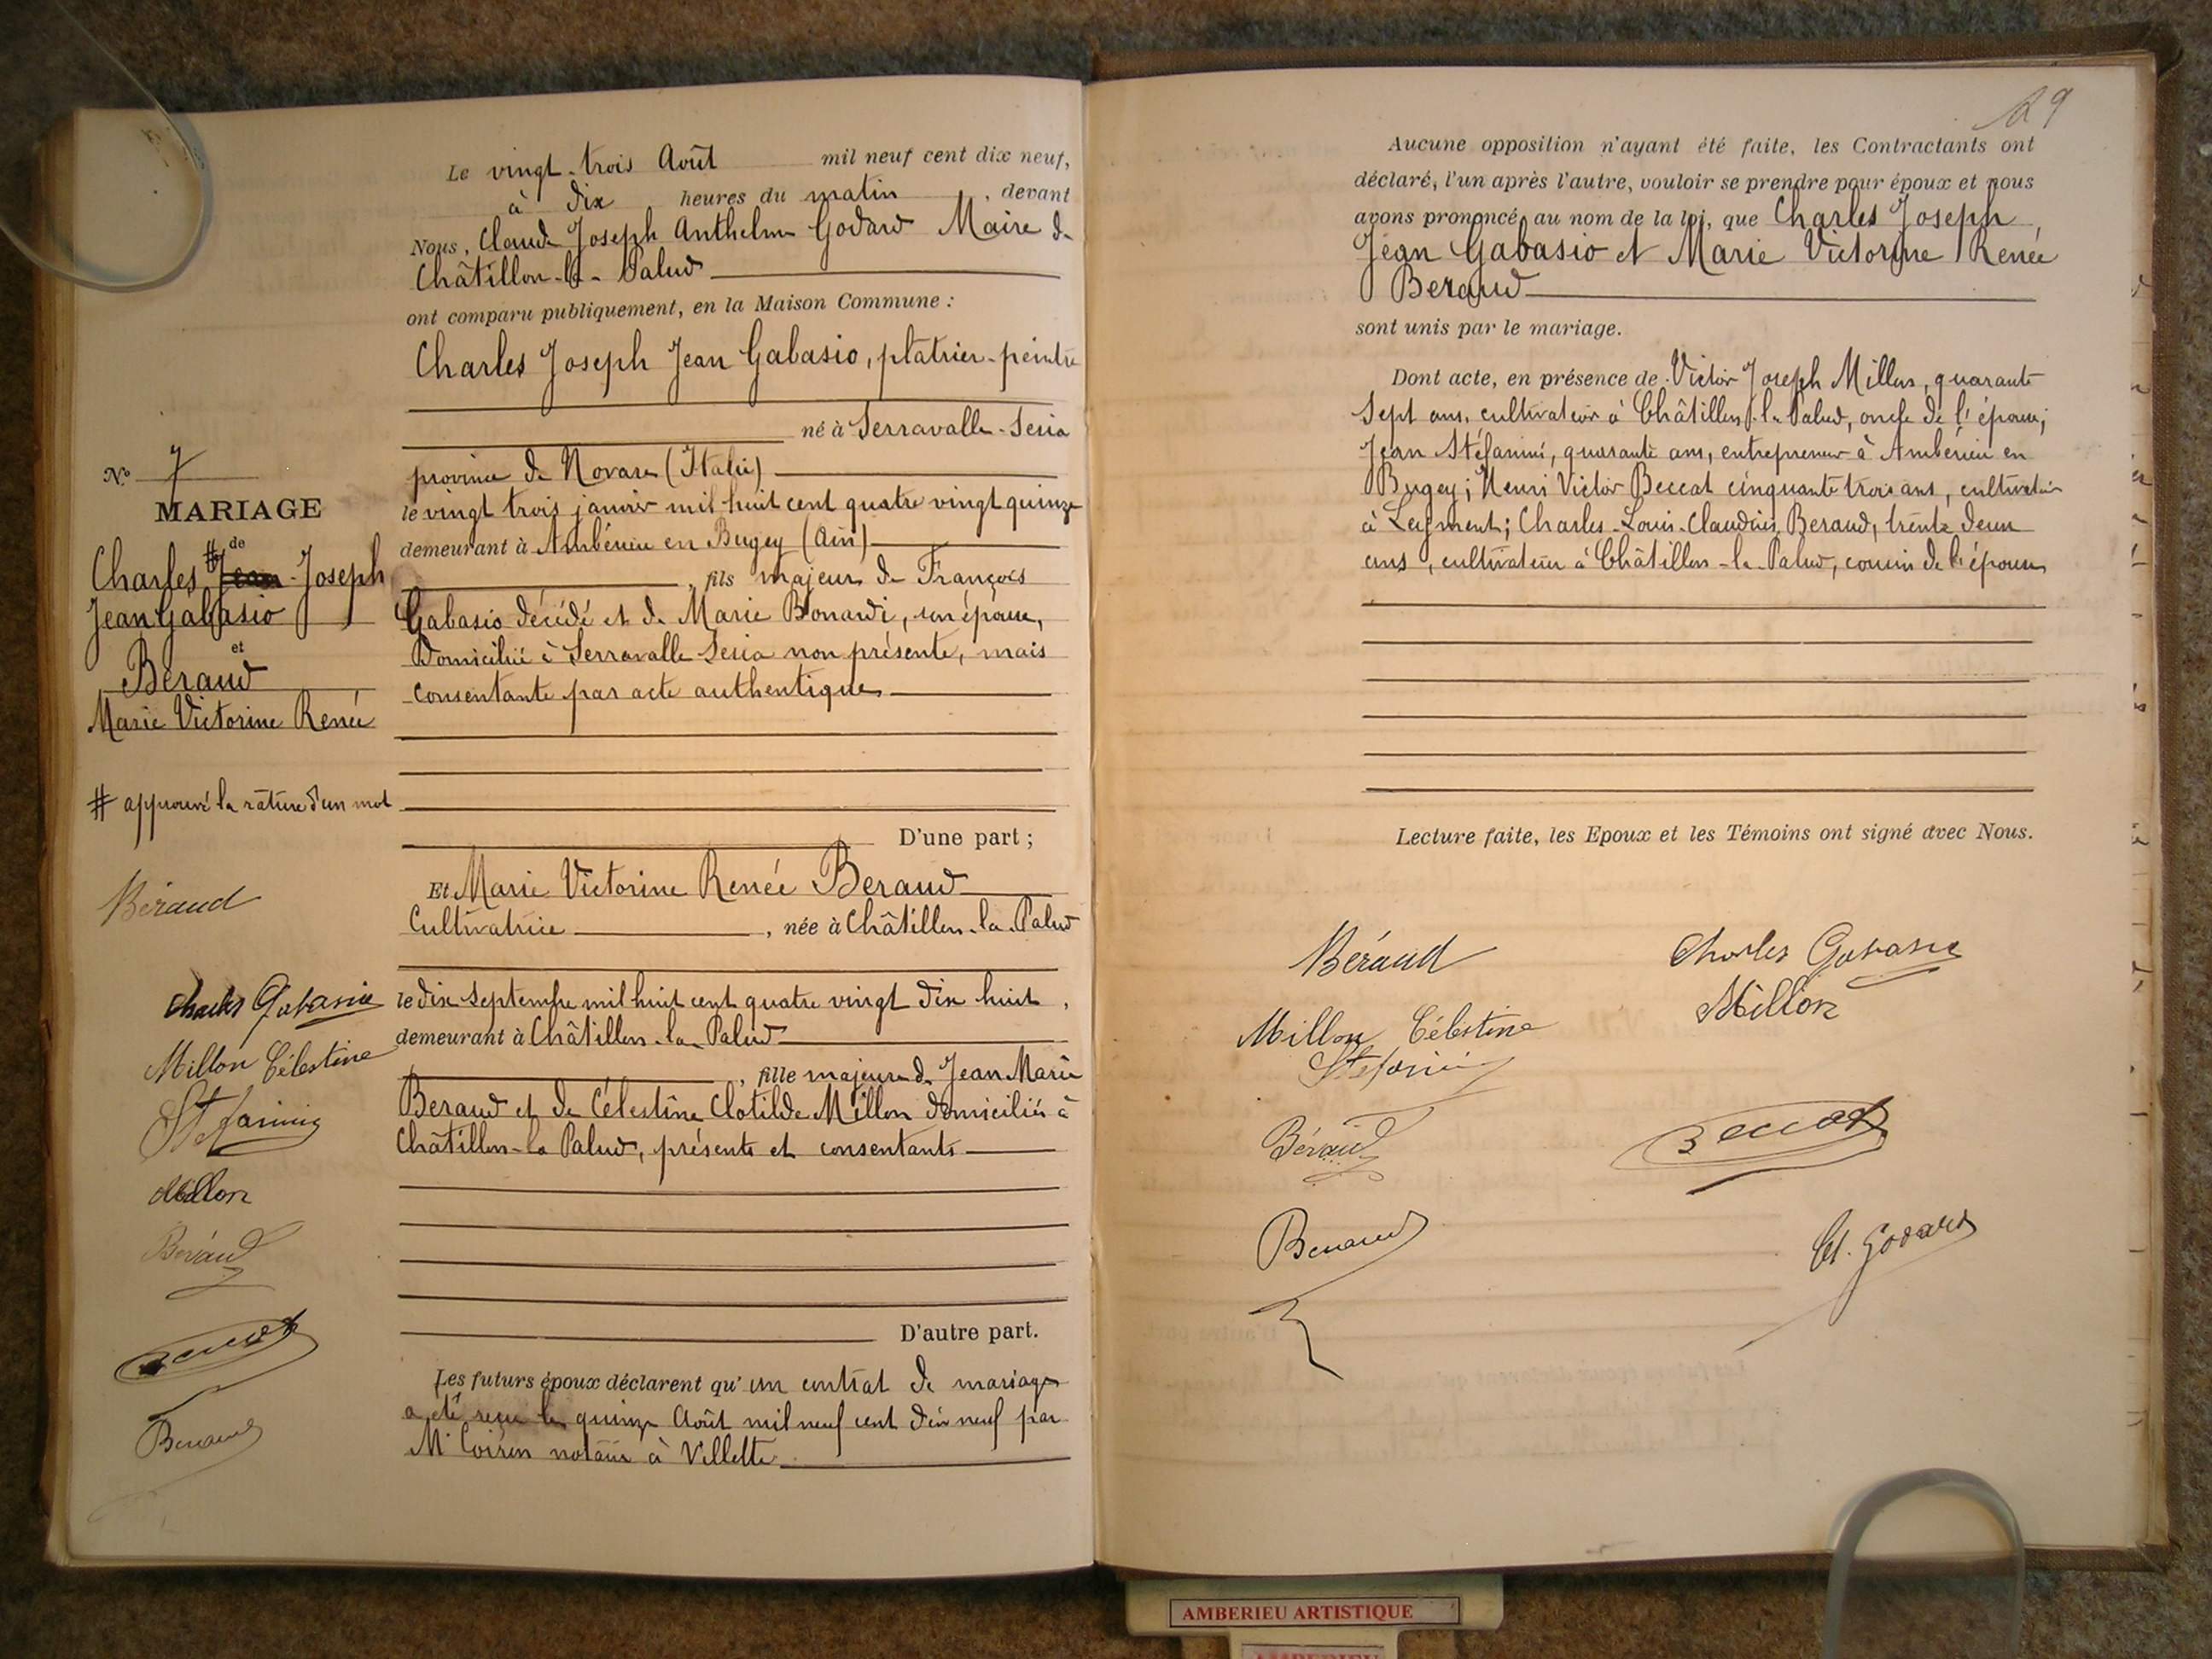 Le vingt-trois Août mil neuf cent dix neuf,
à dix heures du matin, devant
Nous, Claude Joseph Anthelme Godard Maire de
Châtillon-la-Palud
ont comparu publiquement, en la Maison Commune :
Charles Joseph Jean Gabasio, platrier-peintre
né à Serravalle-Sesia
province de Novare (Italie)
le vingt trois janvier mil huit cent quatre vingt quinze
demeurant à Ambérieu en Bugey (Ain)
, fils majeur de François
Gabasio décédé et de Marie Bonardi, son épouse,
domiciliée à Serravalle Sesia non présente, mais
consentante par acte authentique
D'une part ;
Et Marie Victorine Renée Beraud
Cultivatrice , née à Châtillon-la-Palud
le dix Septembre mil huit cent quatre vingt dix huit,
demeurant à Châtillon-la-Palud
, fille majeure de Jean Marie
Beraud et de Célestine Clotilde Millon domiciliés à
Châtillon-la Palud, présents et consentants
D'autre part.
Les futurs époux déclarent qu'un contrat de mariage
a été reçu le quinze Août mil neuf cent dix neuf par
Me Coiron notaire à Villette
No 7
MARIAGE
de
Charles # Jean - Joseph
Jean Gabasio
et
Beraud
Marie Victorine Renée
# approuvé la rature d'un mot
Béraud
Charles Gabasio
Millon Célestine
Stefanini
Millon
Béraud
Beccat
Beraud
29
Aucune opposition n'ayant été faite, les Contractants ont
déclaré, l'un après l'autre, vouloir se prendre pour époux et nous
avons prononcé, au nom de la loi, que Charles Joseph,
Jean Gabasio et Marie Victorine Renée
Beraud
sont unis par le mariage.
Dont acte, en présence de Victor Joseph Millon, quarante
Sept ans, cultivateur à Châtillon-la-Palud, oncle de l'épouse;
Jean Stéfanini, quarante ans, entrepreneur à Ambérieu en
Bugey; Henri Victor Beccat cinquante trois ans, cultivateur
à Leyment; Charles-Louis-Claudius Beraud, trente deux
ans, cultivateur à Châtillon-la-Palud, cousin de l'épouse
Lecture faite, les Epoux et les Témoins ont signé avec Nous.
Béraud Charles Gabasio
Millon Célestine Millon
Stefanini
Béraud Beccat
Beraud Cl. Godard
AMBERIEU ARTISTIQUE
AMBERIEU